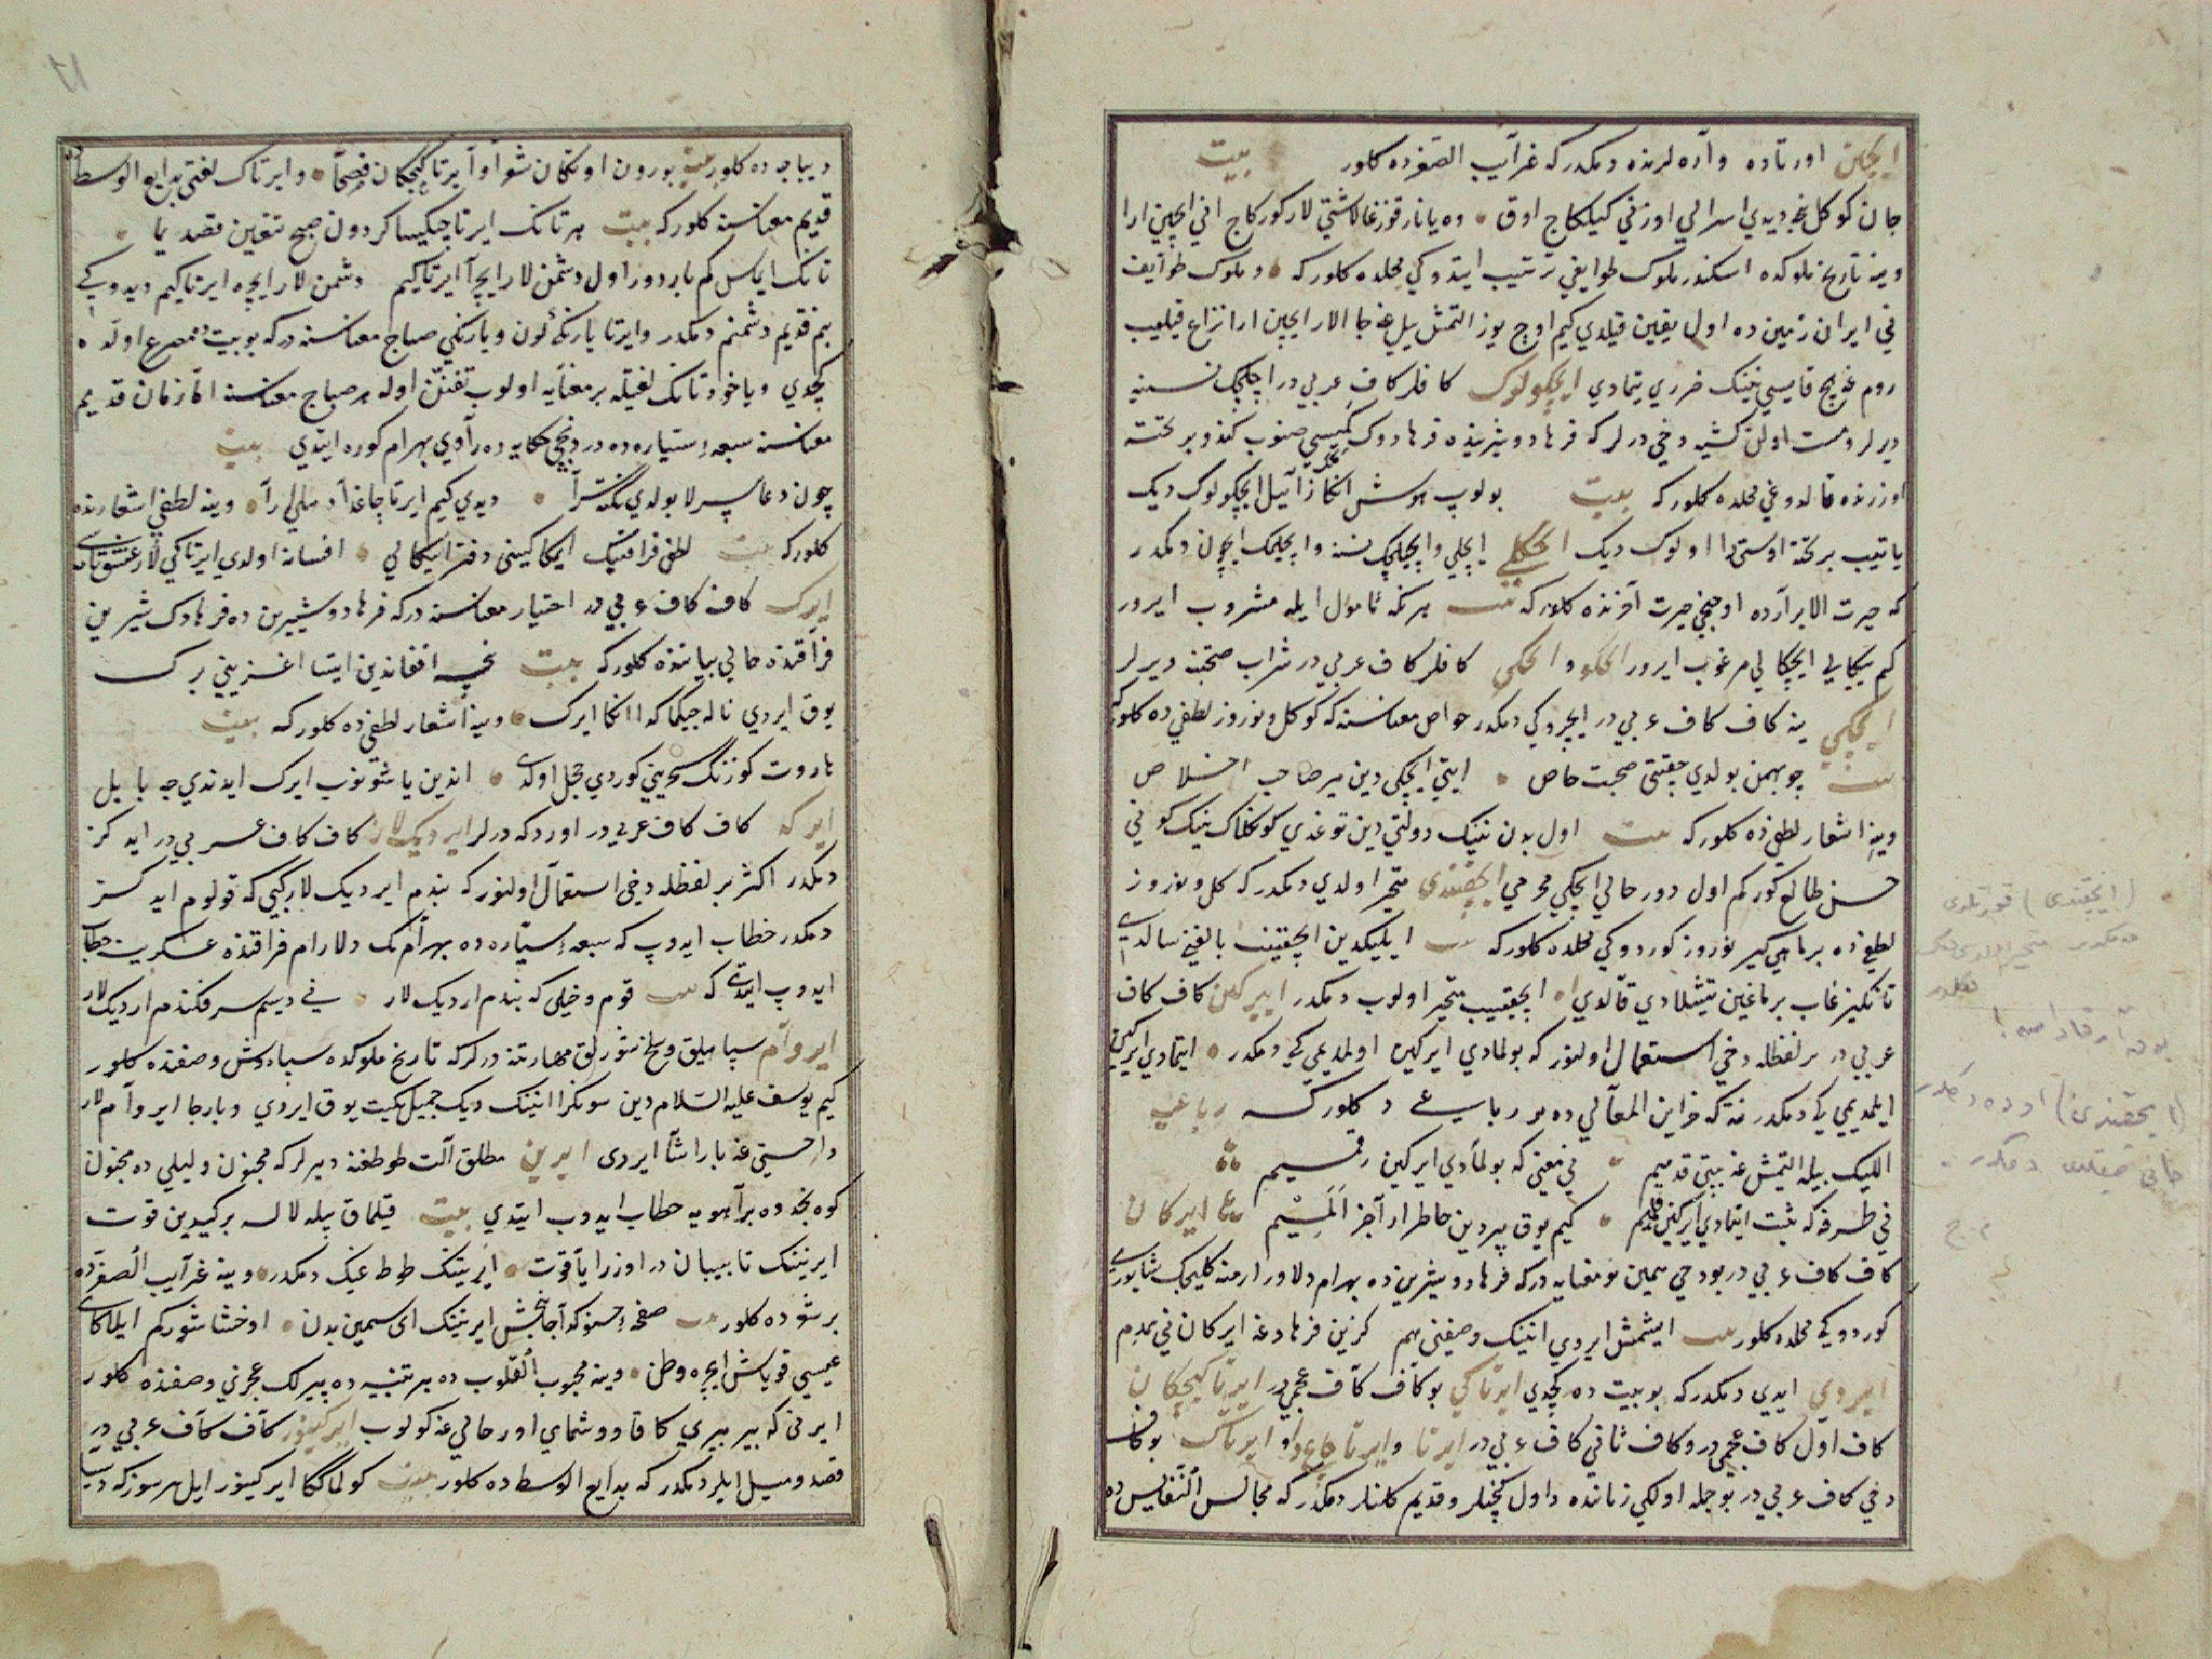 ایچین اورتاده وآره لرنده دمکدر که غرآیب الصغرده کلور بیت
جان کوکل نیجه دیدي اسرالي اوزني کیلکاج اوق وه یانار قوزغالاشتي لار کورکاج اني ایچین ارا
وینه تاریخ ملوکده اسکندر ملوک طوایفي ترتیب ایتدوکي محلده کلور که و ملوک طوآیف
ني ایران زمین ده اول یقین قیلدي کیم اوچ یوز التمش ییل غه جا الار ایچین ارا نزاع قیلیب
روم غه هیچ قایسي نینک ضرري یتمادي ایچکولوک کافلر کاف عربي در ایچیلجک نسنیه
دیرلر ومست اولن کشیه دخي درلر که فرهاد وشیرینده فرهادوک کمیسي صنوب کندو بر تخته
اوزرنده قالدوغي محلده کلور که بیت بولوب هوش انکا زآئیل ایچکولوک دیک
یاتیب بر تخته اوستیدا اولوک دیک ایچکلي ایچلي وایچیلجک نسنه وایچیلمک ایچون دمکدر
که حیرت الابرآرده اوچنجي حیرت آخرنده کلور که بیت هر نکه مأمول ایله مشروب ایرور
کم ییکالي ایچکالي مرغوب ایرور ایچکو وایچکي کافلر کاف عربي در شراب صحبتنه دیرلر
ایچکي ینه کاف کاف عربي در ایچروکي دمکدر خواص معناسنه که کل ونوروز لطفي ده کلور که
بیت چو بهمن بولدي جقتي صحبت خاص ایتي ایچکي دین میر صاحب اخلاص
وینه اشعار لطفي ده کلور که بیت اول بدن نینک دولتي دین توغدي کونکلاک نینک کوني
حسن طالع کورکم اول دور حالي ایچکي محرمي ایچقیندي متحیر اولدي دمکدر که کل ونوروز
لطفي ده برماهي کیر نوروز کوردوکي محلده کلور که بیت ایلیکدین ایچقینیب بالیغني سالدي
تانکیرغاب برماغین تیشلادي قالدي ایچقینیب متحیر اولوب دمکدر ایرکین کاف کاف
عربي در بر لفظله دخي استعمال اولنور که بولمادي ایرکین اولمدیمي که دمکدر ایتمادي ایرکین
ایلمدیمي که دمکدر نته که خزاین المعآني ده بر رباعي ده کلور که رباعي
اللیک بیله التمیش غه ییتي قدیم ني معني که بولمأدي ایرکین رقمیم
ني طرفه که ثبت ایتمادي ایرکین قلمیم کیم یوق بیردین خاطر ارا جز المیم ایرکان
کاف کاف عربي در بودخي همین بو معنایه در که فرهاد وشیرین ده بهرام دلاور ارمنه کلیجک شاپوري
کوردوکي محلده کلور بیت ایشتمش ایردي انینک وصفني هم کزین فرهاد غه ایرکان ني همدم
ایردي ایدي دمکدر که بو بیت ده کچدي ایرتاکي بو کاف کآف عجمي در ایرتا کیچکان
کاف اول کاف عجمي در وکاف ثاني کاف عربي در ایرتا وایرتا جاغدا وایرتاک بو کاف
دخي کاف عربي در بو جمله اولکي زمانده واول کچنلر وقدیم کلنلر دمکدر که مجالس النفایس ده
دیباجه ده کلور بیت بورون اوتکان شعرآ وآیرتا کیچکان فصحآ وایرتاک لغتي بدایع الوسطده
قدیم معناسنه کلور که بیت هر تانک ایرتا چیکیسا کردون صبح تیغین قصدیما
تانک ایماس کم باردور اول دشمن لار ایچرا ایرتاکیم دشمن لار ایچره ایرتاکیم دیدوکي
بنم قدیم دشمنم دمکدر وایرتا یارنکي کون ویارنکي صباح معناسنه در که بو بیت ده مصرع اولده
کچدي ویاخود تانک لفظیله بر معنایه اولوب تفنن اوله هر صباح معناسنه اما زمان قدیم
معناسنه سبعه ستیاره ده دردنجي حکایه ده رآوي بهرام کوره ایتدي بیت
چون دعا بیرلا بولدي نکته سرآ دیدي کیم ایرتا چاغدا دهلي رآ وینه لطفي اشعارنده
کلور که بیت لطفي فراقینک ایمکاکیني دفتر ایتکالي افسانه اولدي ایرتاکي لار عشق نامه سي
ایرک کاف کاف عربي در اختیار معناسنه در که فرهاد وشیرین ده فرهادک شیرین
فرآقنده حالي بیاننده کلور که بیت نیجه افغاندین ایتسا اغزیني برک
یوق ایردي ناله جیکماکا انکا ایرک وینه اشعار لطفي ده کلور که بیت
هاروت کوزنک سحریني کوردي خجل اولدي اندین یاشونوب ایرک ایدندي چه بابل
ایرکه کاف کاف عربي در اوردکه درلر ایردیک لار کاف کاف عربي در ایدکز
دمکدر اکثر بر لفظله دخي استعمآل اولنور که بندم ایردیک لار کبي که قولوم ایدکز
دمکدر خطاب ایدوب که سبعه سیاره ده بهرآمک دلارام فراقنده عسکرینه خطاب
ایدوب ایتدي که بیت قوم وخیلي که بندم اردیک لار ني دیسم سرفکندم اردیک لار
ایروآم سپاهیلق وسلاخشورلق مهارتنه درلر که تاریخ ملوکده سیاوش وصفنده کلور
کیم یوسف علیه السلام دین سونکرا انینک دیک جمیل یکیت یوق ایردي وبارجا ایروآم لار
دا حسني غه یاراشا ایردي ایرین مطلق آلت طوطغنه دیرلر که مجنون ولیلي ده مجنون
کوه نجدده برآهویه خطاب ایدوب ایتدي بیت قیلماق بیله لاله برکیدین قوت
ایرنینک تابیبان در اوزرا یاقوت ایرینک طوطاغیک دمکدر وینه غرآیب الصغرده
بر شعرده کلور بیت صفحه حسنوکه آجانبخش ایرنینک ای سمین بدن اوخشاشورکم ایلاکاي
عیسي قویاش ایچره وطن وینه محبوب القلوب ده بر تنبیه ده پیرلک عجزني وصفنده کلور
ایرني که بیر بیري کا قاووشماي اورحالي غه کولوب ایرکینور کآف کآف عربي در
قصد ومیل ایلر دمکدر که بدایع الوسط ده کلور بیت کولماککا ایرکینور ایل هر سوزکه دیسا
(ایچقیندی) قورتلدی
دمکدر متحیر اولدی دیمک
دکلدر
(ایچقیندی) اوده دمکدر
م.ح